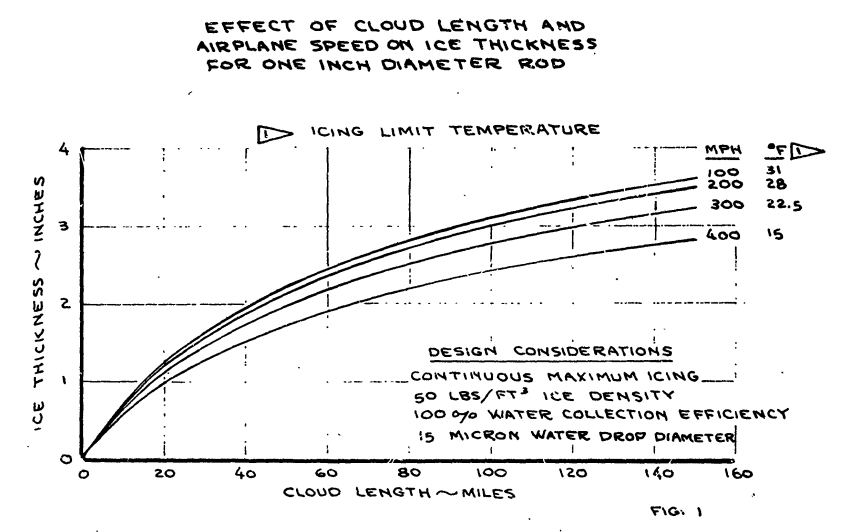 EFFECT OF CLOUD LENGTH AND
AIRPLANE SPEED ON ICE THICKNESS
FOR ONE INCH DIAMETER ROD
1 ICING LIMIT TEMPERATURE
MPH °F 1
100 31
200 28
300 22.5
400 15
4
3
2
1
0
ICE THICKNESS ~ INCHES
DESIGN CONSIDERATIONS
CONTINUOUS MAXIMUM ICING
50 LBS/FT³ ICE DENSITY
100 % WATER COLLECTION EFFICIENCY
15 MICRON WATER DROP DIAMETER
0 20 40 60 80 100 120 140 160
CLOUD LENGTH ~ MILES
FIG. 1